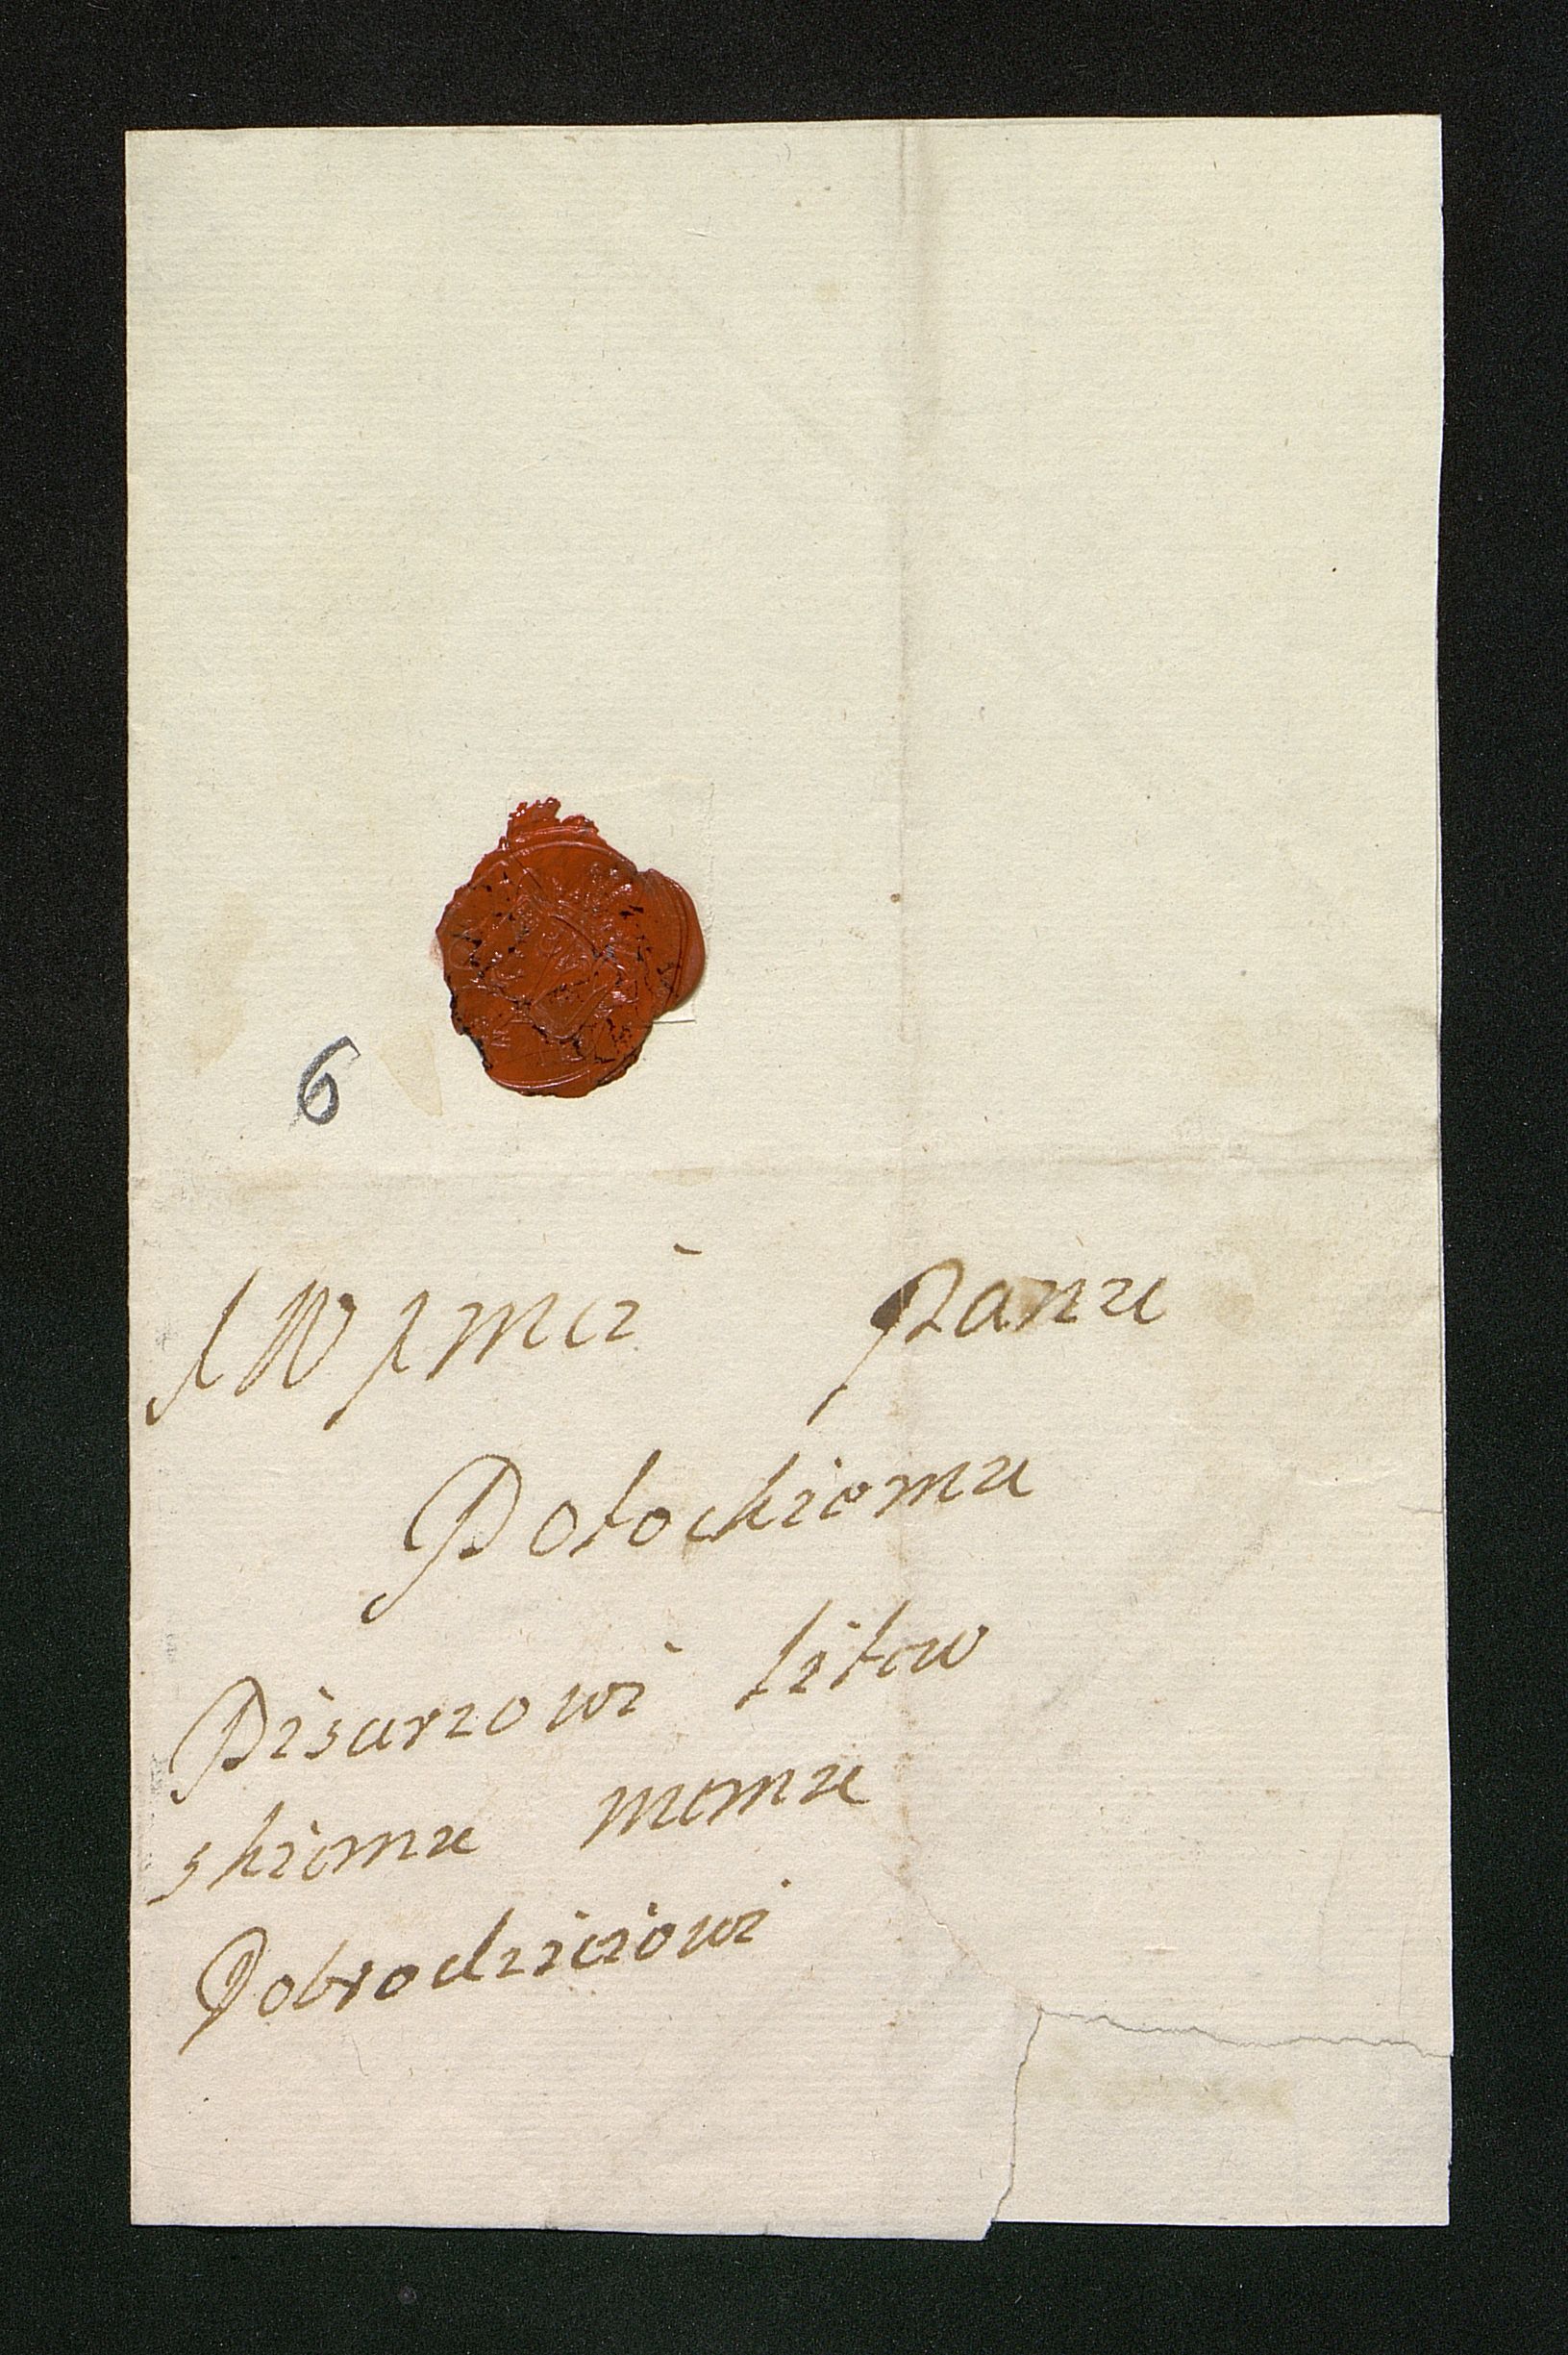 6
J W J mci Panu
Potockiemu
Pisarzowi litew
skiemu memu
Dobrodzieiowi